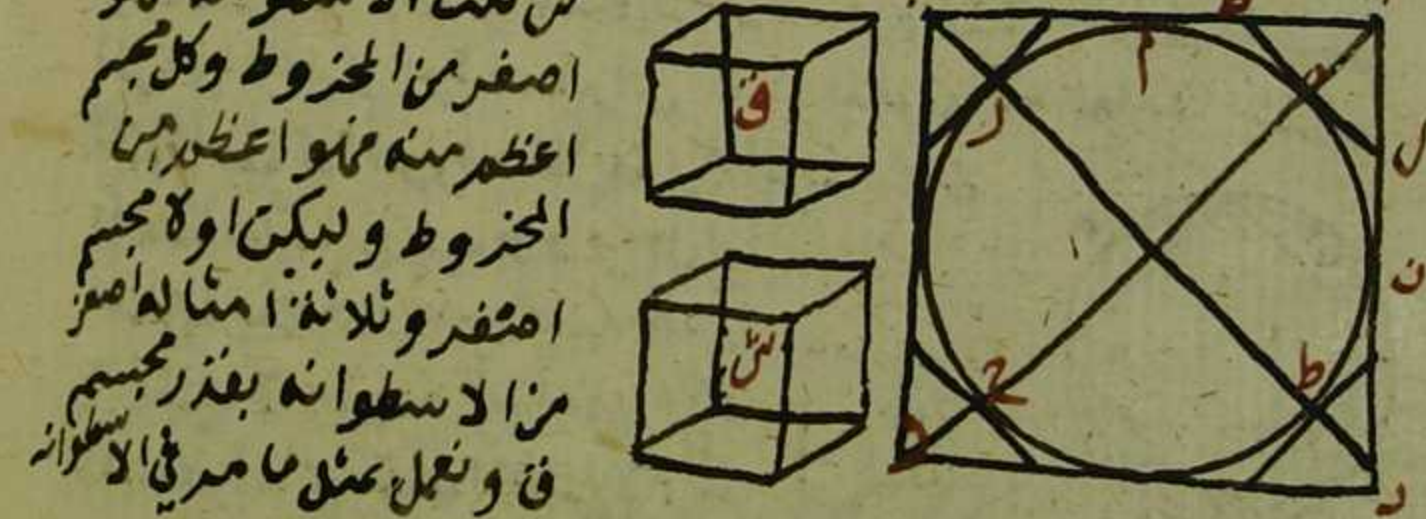 اصغر من المخروط وكل مجسم
اعظم منه فهو اعظم من
المخروط وليكن اولا مجسم
اصغر وثلاثة امثاله اصغر
من الاسطوانه بقدر مجسم
ق و نعمل بمثل ما مر في الاسطوانه
ق
س
م
ر
ل
ن
ط
ح
ه
د